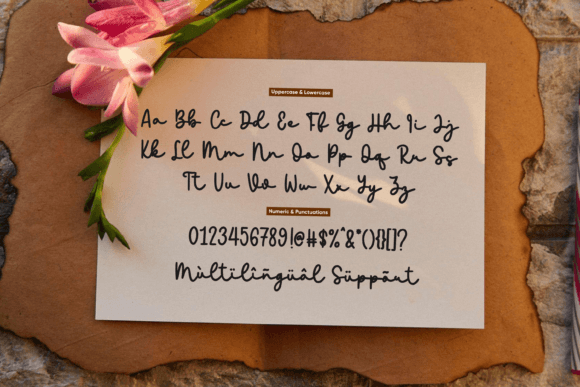 Uppercase & Lowercase
Aa Bb Cc Dd Ee Ff Gg Hh Ii Jj
Kk Ll Mm Nn Oo Pp Qq Rr Ss
Tt Uu Vv Ww Xx Yy Zz
Numeric & Punctuations
0123456789!@#$%^&*(){}[]?
Mùltïlîñgüâl Süppõrt